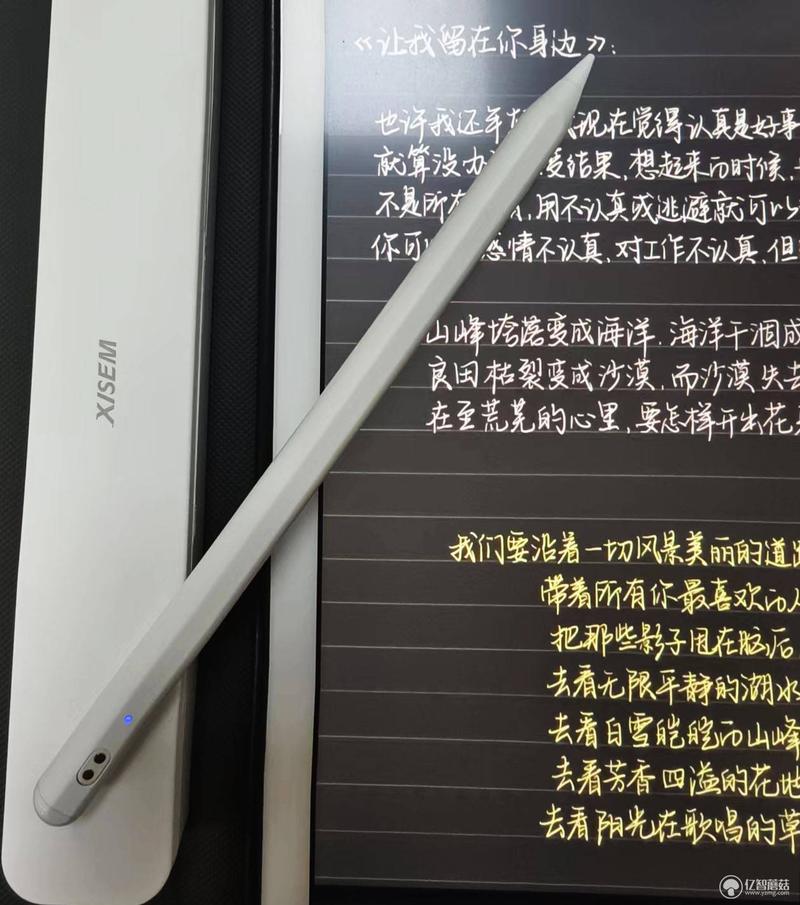 XISEM
《让我留在你身边》:
也许我还年 现在觉得认真是好事
就算没办 受结果,想起来的时候,
不是所有 ,用不认真或逃避就可以
你可 感情不认真,对工作不认真,但
山峰垮落变成海洋,海洋干涸成
良田枯裂变成沙漠,而沙漠失去
在至荒芜的心里,要怎样开出花
我们要沿着一切风景美丽的道路
带着所有你最喜欢的人
把那些影子甩在脑后
去看无限平静的湖水
去看白雪皑皑的山峰
去看芳香四溢的花地
去看阳光在歌唱的草
亿智蘑菇
www.yzmg.com